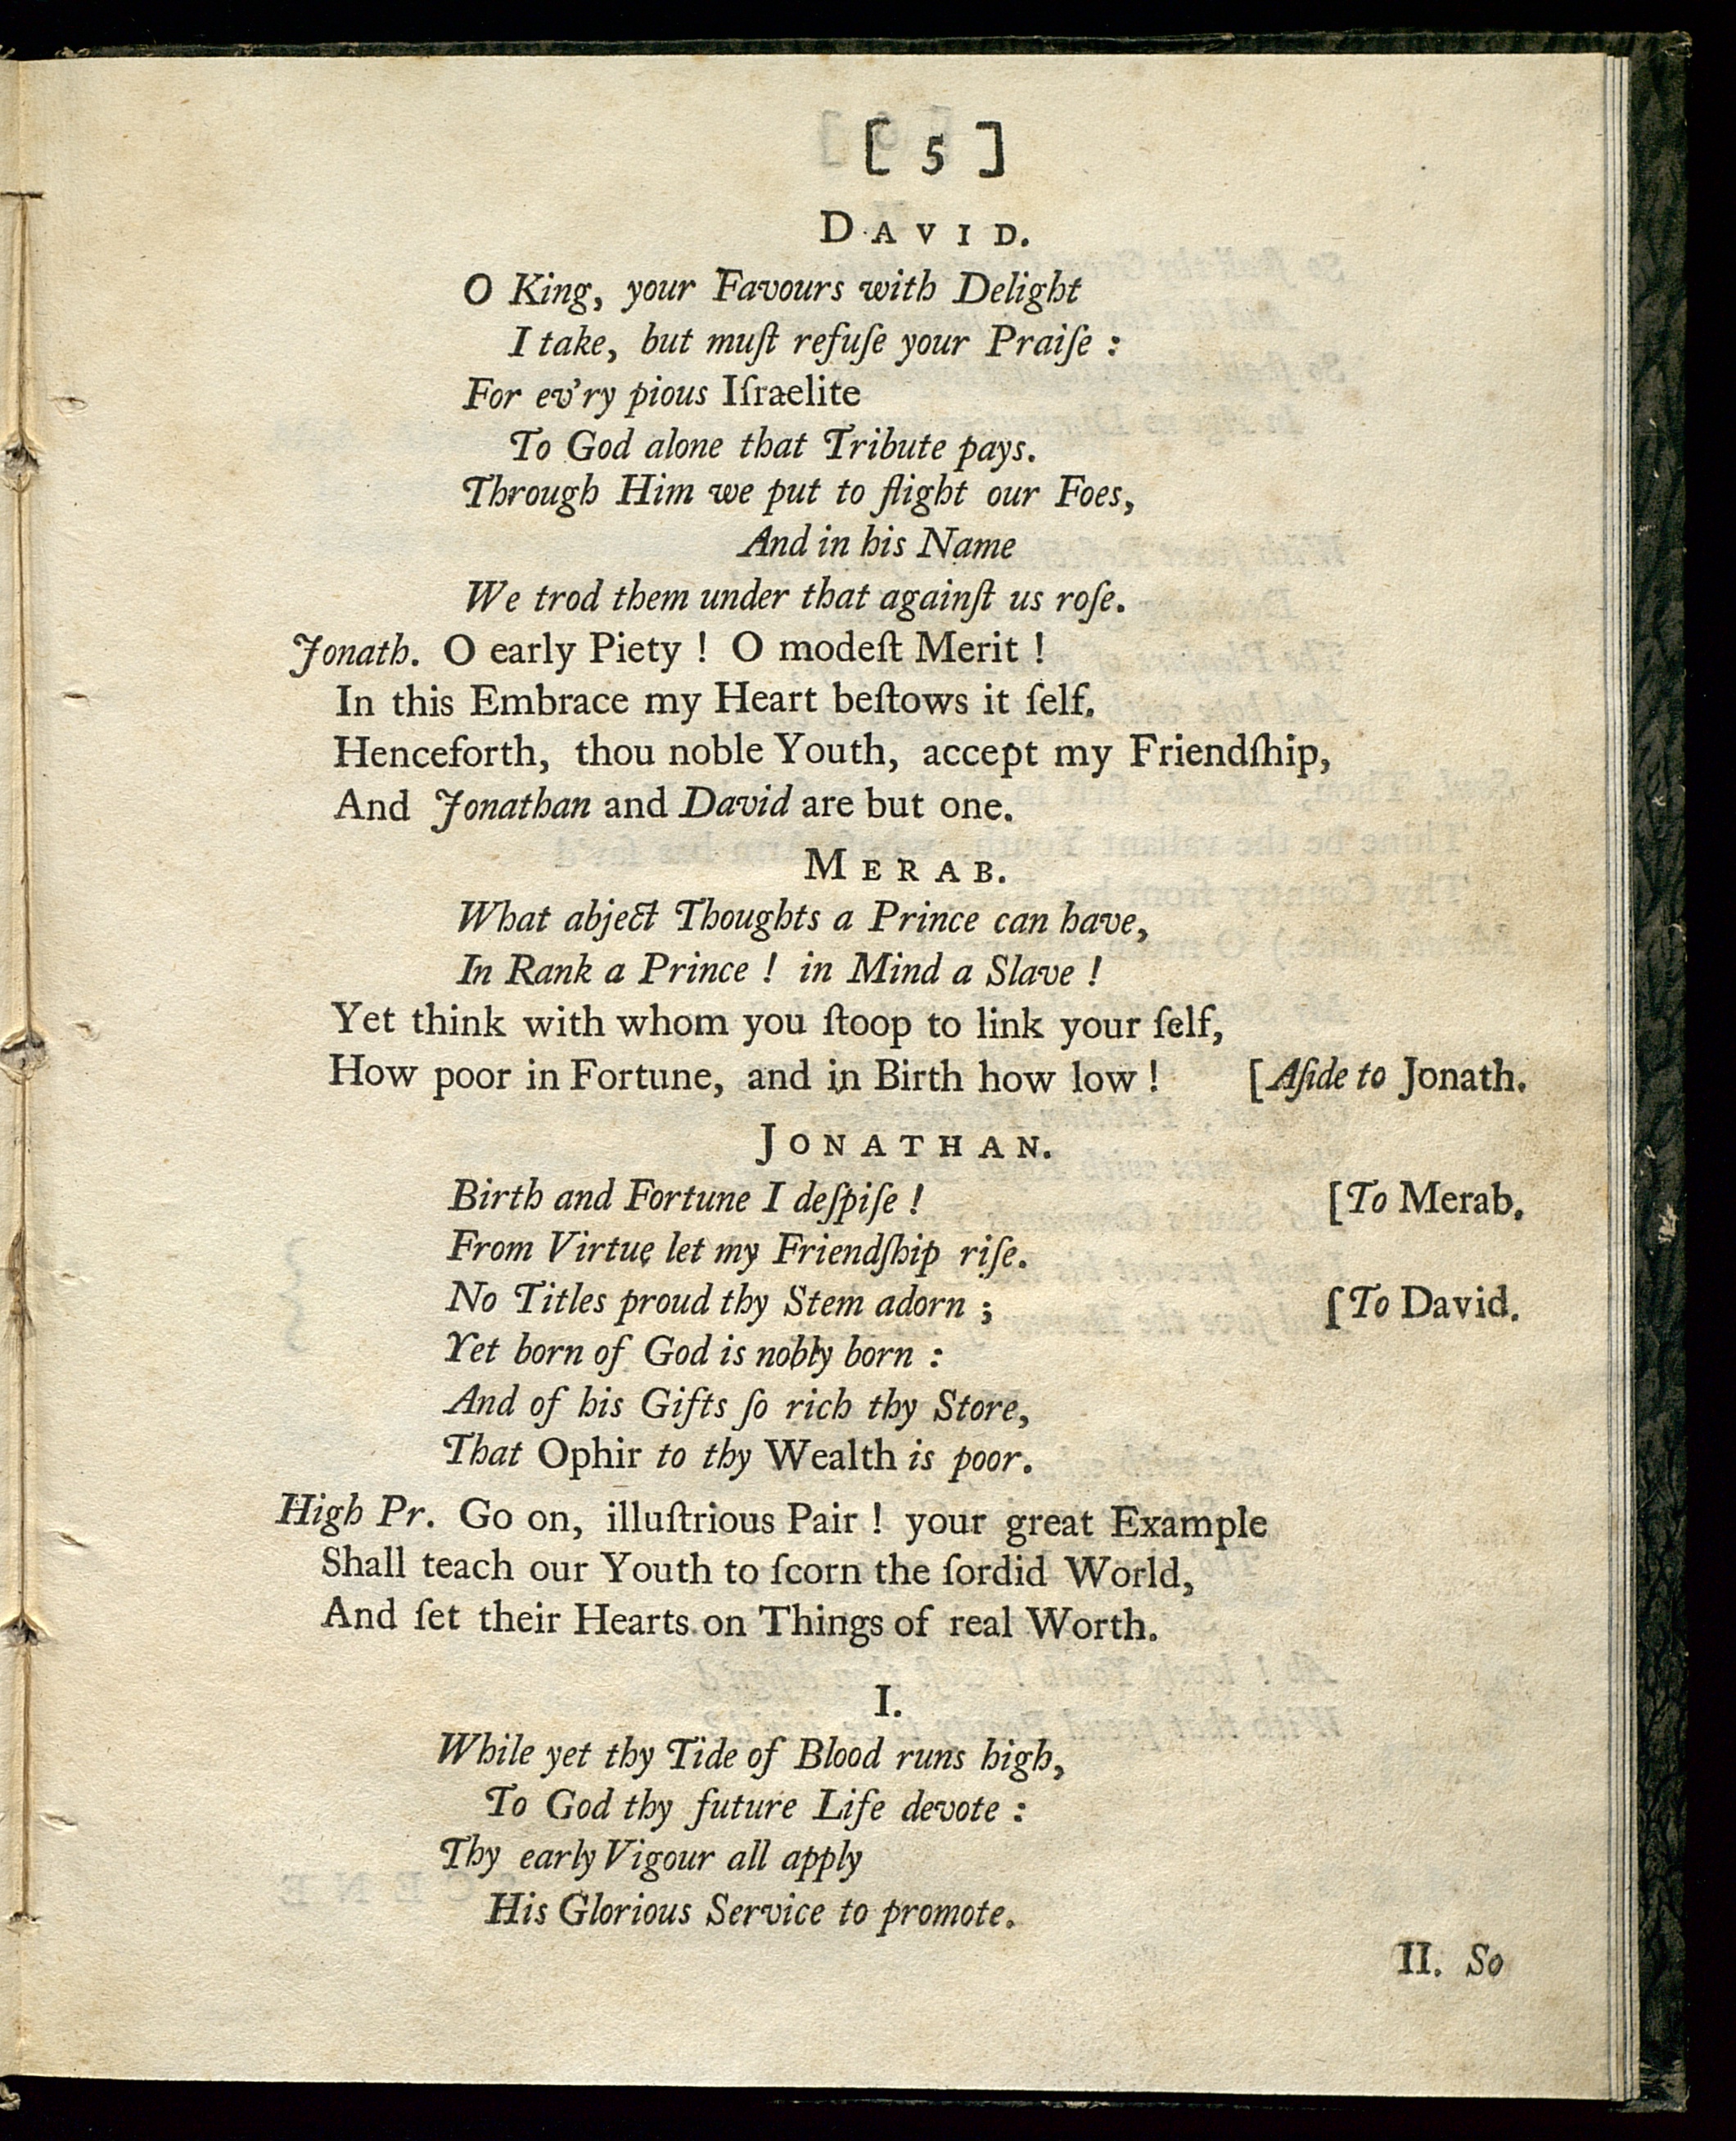 [ 5 ]
DAVID.
O King, your Favours with Delight
I take, but muſt refuſe your Praiſe :
For ev'ry pious Iſraelite
To God alone that Tribute pays.
Through Him we put to flight our Foes,
And in his Name
We trod them under that againſt us roſe.
Jonath. O early Piety ! O modeſt Merit !
In this Embrace my Heart beſtows it ſelf.
Henceforth, thou noble Youth, accept my Friendſhip,
And Jonathan and David are but one.
MERAB.
What abject Thoughts a Prince can have,
In Rank a Prince ! in Mind a Slave !
Yet think with whom you ſtoop to link your ſelf,
How poor in Fortune, and in Birth how low ! [Aſide to Jonath.
JONATHAN.
Birth and Fortune I deſpiſe ! [To Merab.
From Virtue let my Friendſhip riſe.
No Titles proud thy Stem adorn ; [To David.
Yet born of God is nobly born :
And of his Gifts ſo rich thy Store,
That Ophir to thy Wealth is poor.
High Pr. Go on, illuſtrious Pair ! your great Example
Shall teach our Youth to ſcorn the ſordid World,
And ſet their Hearts on Things of real Worth.
I.
While yet thy Tide of Blood runs high,
To God thy future Life devote :
Thy early Vigour all apply
His Glorious Service to promote.
II. So